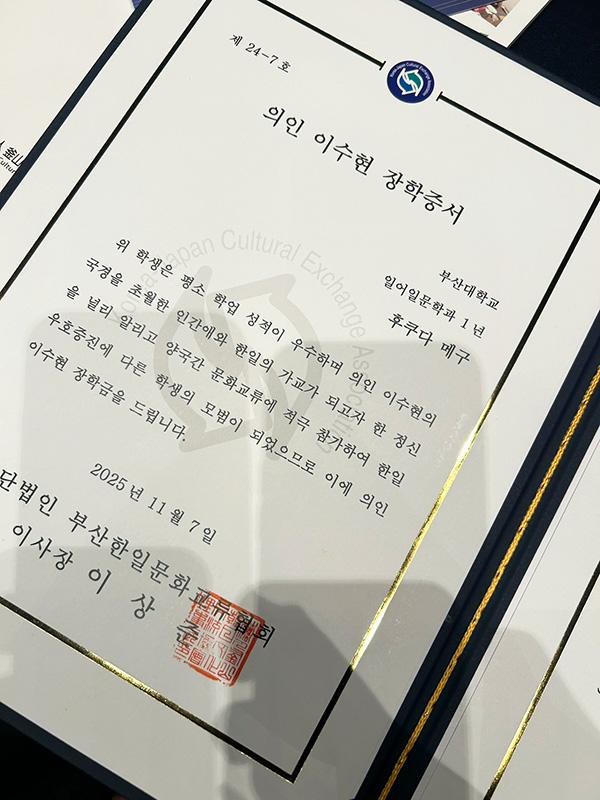 제 24-7 호
의인 이수현 장학증서
부산대학교
일어일문학과 1 년
후쿠다 메구
위 학생은 평소 학업 성적이 우수하며 의인 이수현의
국경을 초월한 인간애와 한일의 가교가 되고자 한 정신
을 널리 알리고 양국간 문화교류에 적극 참가하여 한일
우호증진에 다른 학생의 모범이 되었으므로 이에 의인
이수현 장학금을 드립니다.
2025 년 11 월 7 일
단법인 부산한일문화교류협회
이사장 이 상 준
Korea Japan Cultural Exchange Association
釜山